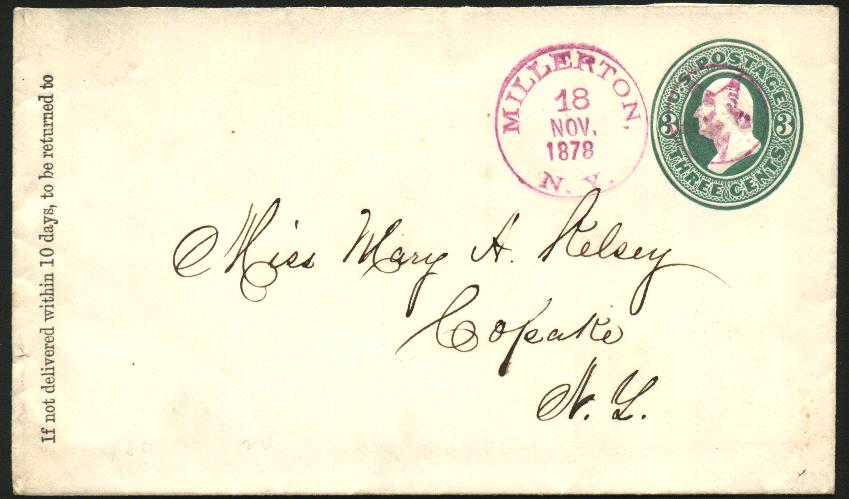 If not delivered within 10 days, to be returned to
MILLERTON,
18
NOV.
1878
N. Y.
U.S. POSTAGE
3 3
THREE CENTS
Miss Mary A. Kelsey
Copake
N. Y.